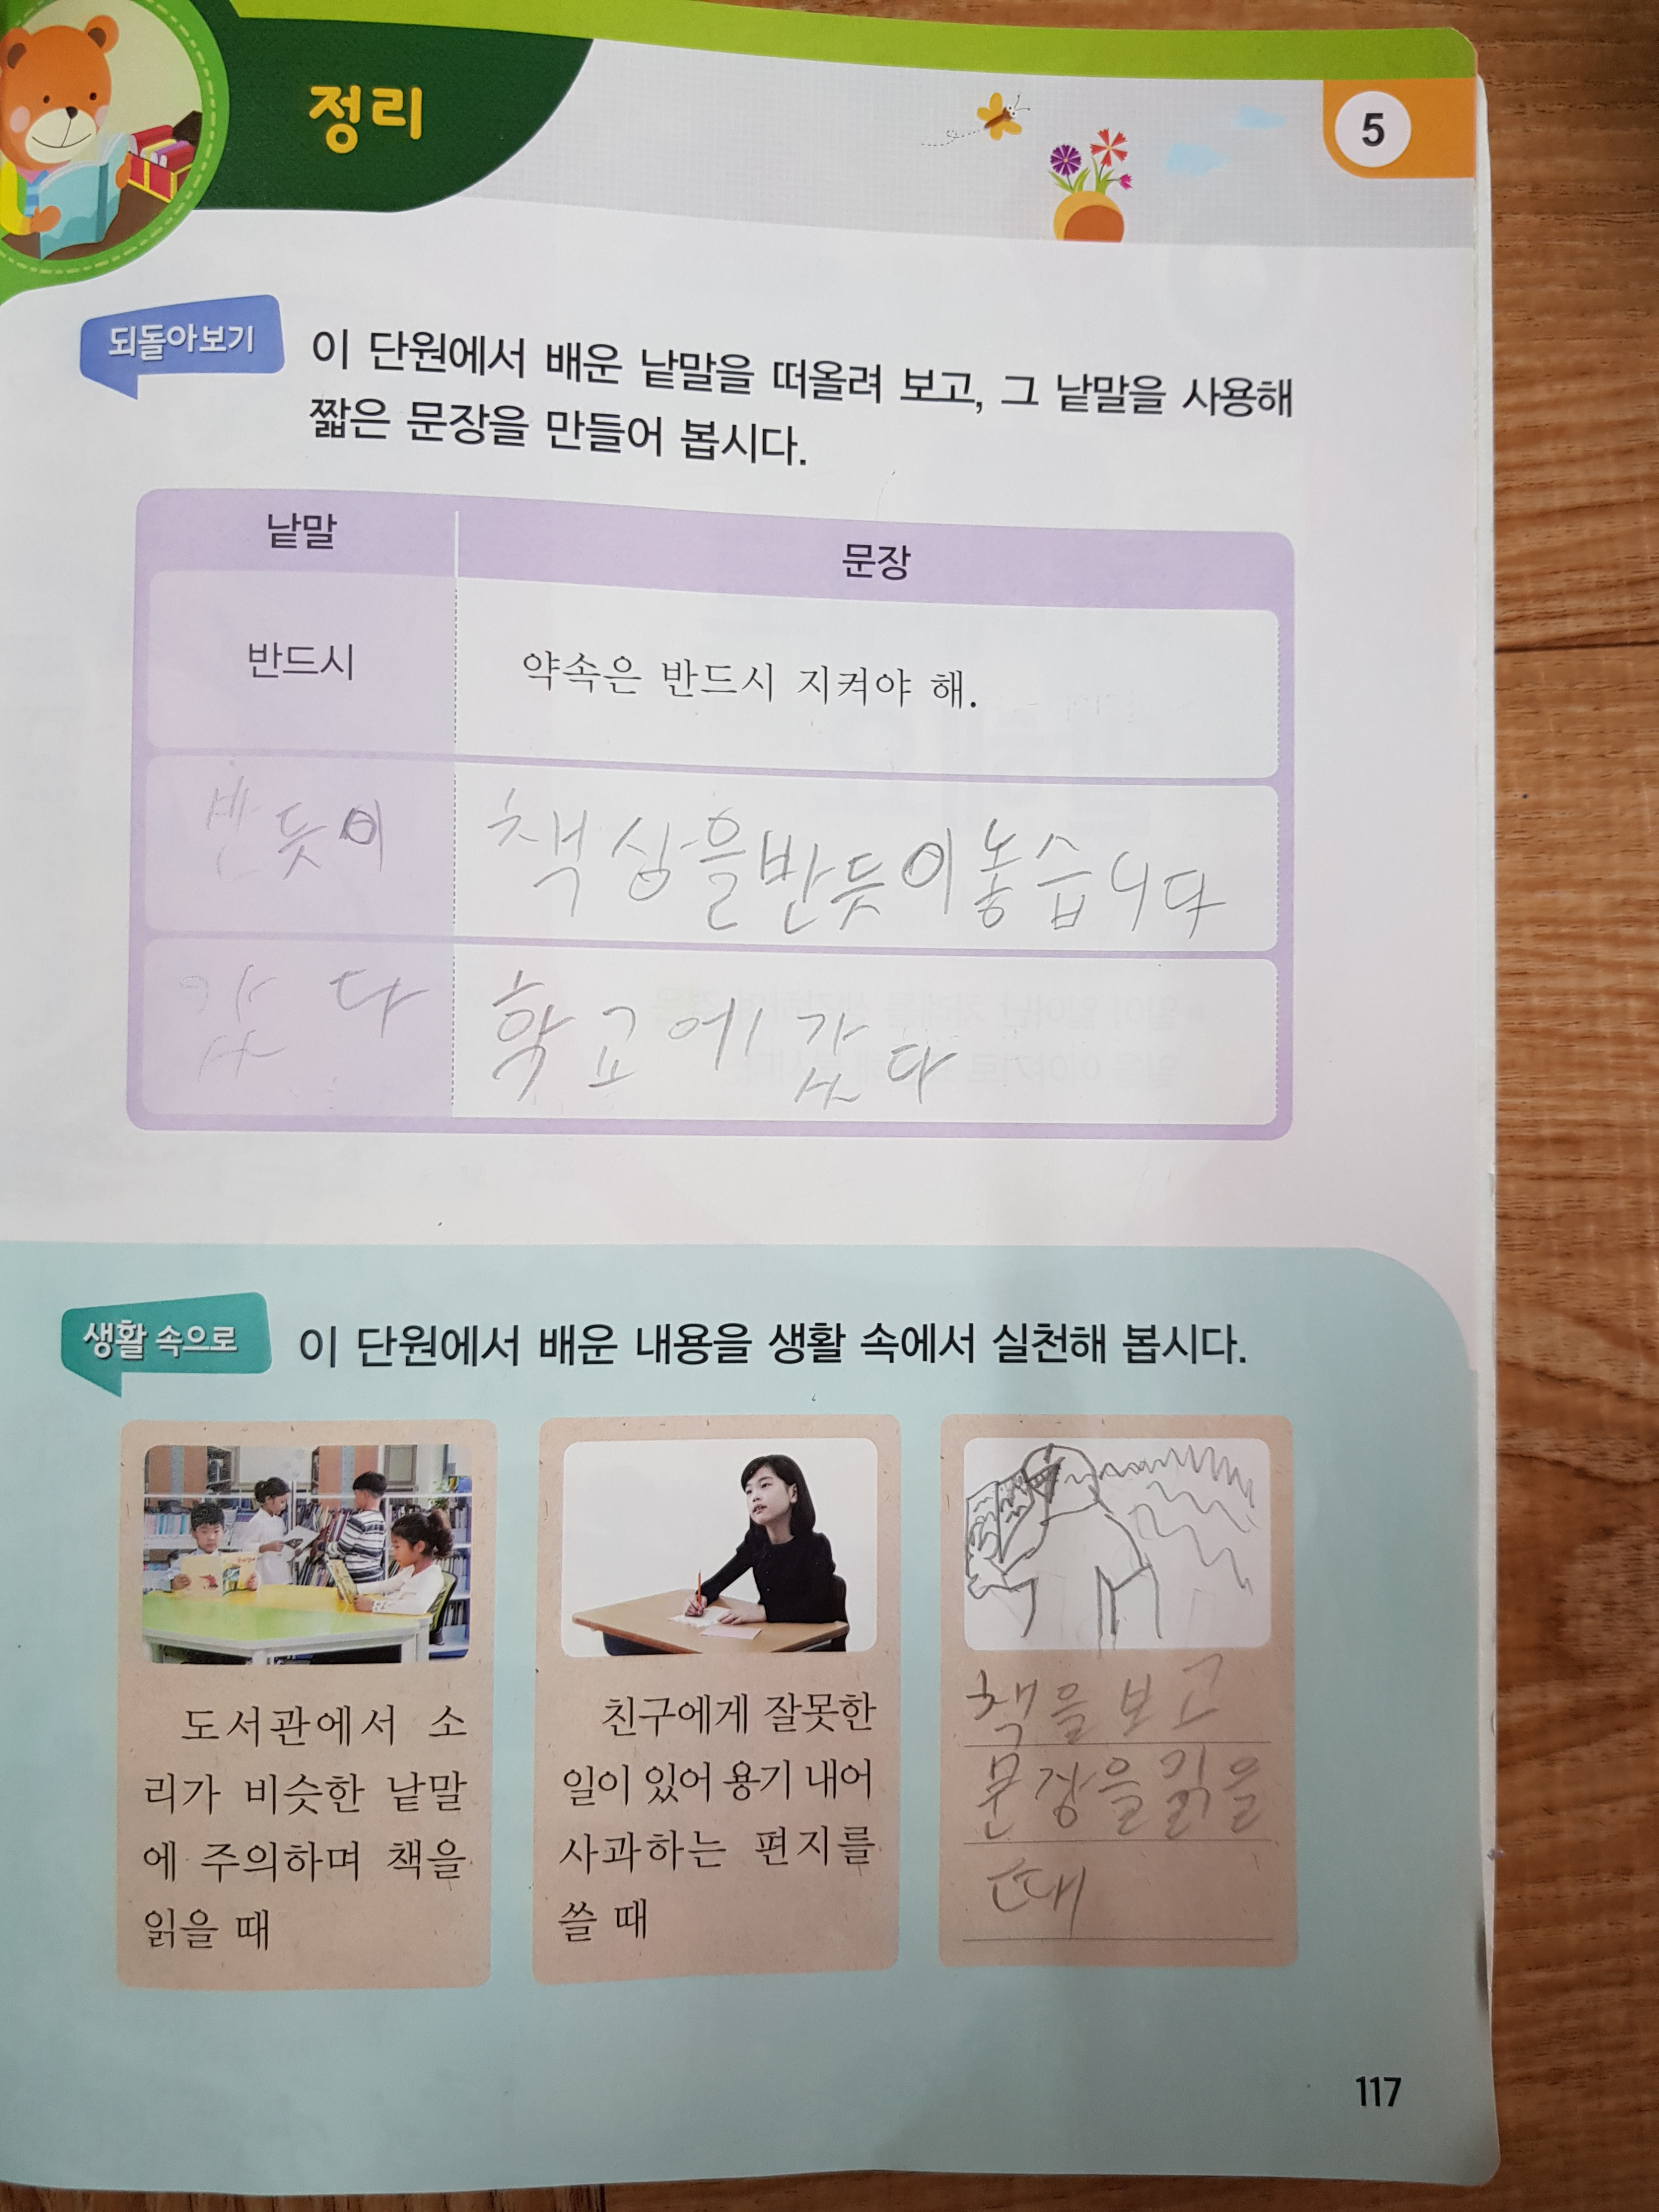 정리
5
되돌아보기
이 단원에서 배운 낱말을 떠올려 보고, 그 낱말을 사용해
짧은 문장을 만들어 봅시다.
낱말 문장
반드시 약속은 반드시 지켜야 해.
반듯이 책상을반듯이놓습니다
갔다 학교에 갔다
생활 속으로
이 단원에서 배운 내용을 생활 속에서 실천해 봅시다.
도서관에서 소
리가 비슷한 낱말
에 주의하며 책을
읽을 때
친구에게 잘못한
일이 있어 용기 내어
사과하는 편지를
쓸 때
책을 보고
문장을 읽을
때
117